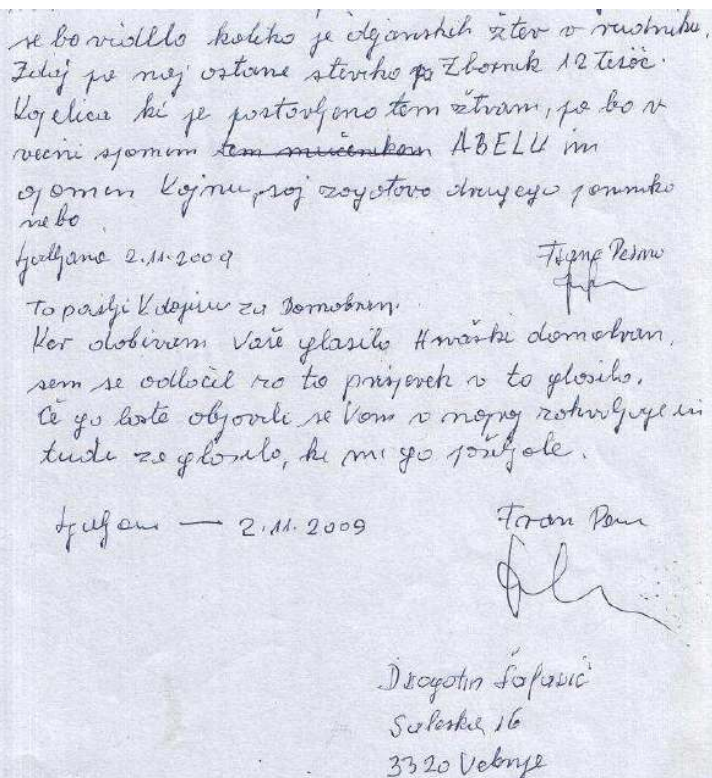 se bo vidllo koliko je dejanskih žtev v rudniku.
Zdaj pa naj ostane številko Zbornik 12 tisoč.
Kapelica ki je postavljeno tem žtvam, pa bo v
večni spomen tem mučenikom ABELU in
opomin Kajnu, saj zagotovo drugega pomniko
ne bo
Ljubljana 2.11.2009
To pošlji V za Domobran.
Ker dobivam Vaše glasilo Hrvaški domobran,
sem se odločil za ta prispevek v to glasilo.
Če ga boste objavili se Vam v naprej zahvaljuje in
tudi za glasilo, ki mi ga pošiljate.
Ljubljana — 2.11.2009
Franc
Dragotin
Šaleška 16
3320 Velenje